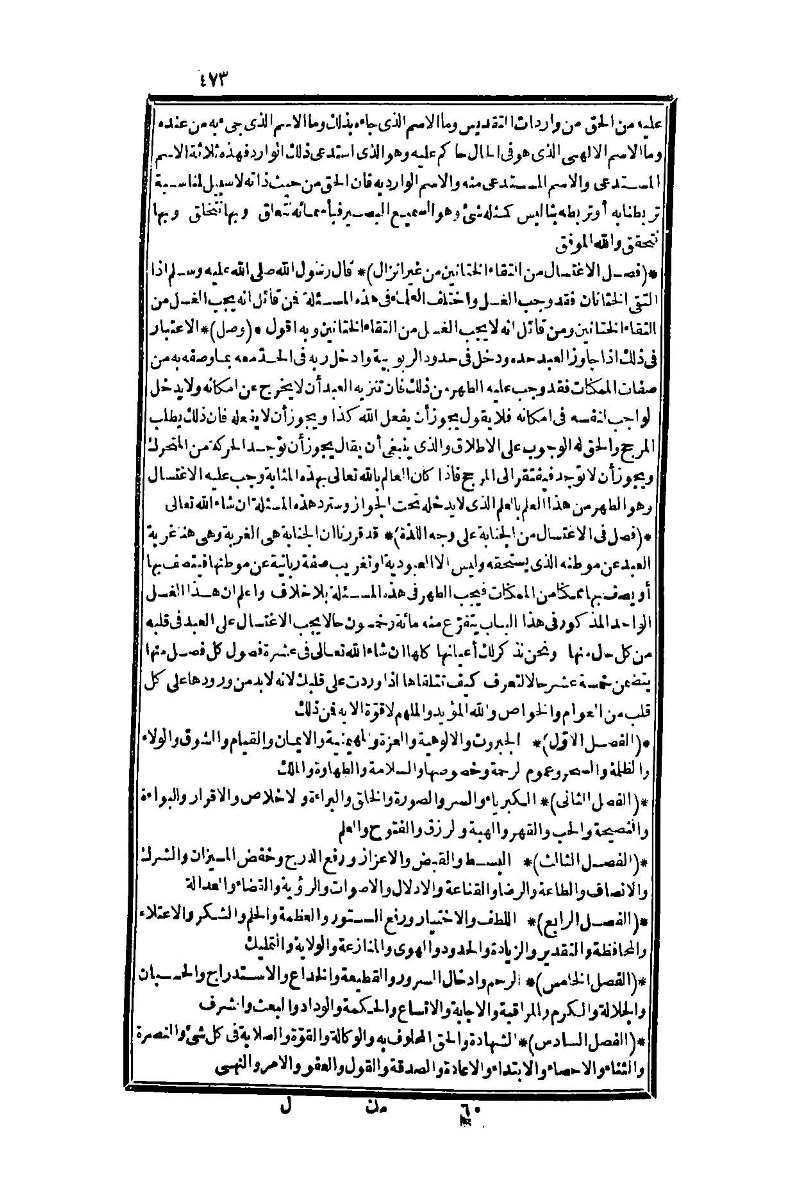 ٤٧٣
عليه من الحق من واردات التقديس وما الاسم الذى جاءه بذلك وما الاسم الذى جىء به من عنده
وما الاسم الالهى الذى هو فى الحال حاكم عليه وهو الذى استدعى ذلك الوارد فهذه ثلاثة الاسم
المستدعى والاسم المستدعى منه والاسم الوارد به فان الحق من حيث ذاته لا سبيل لمناسبة
تربطنا به أو تربطه بنا ليس كمثله شئ وهو السميع البصير فبأسمائه نتعلق وبها نتخلق وبها
نتحقق والله الموفق
*(فصل الاغتسال من التقاء الختانين من غير انزال)* قال رسول الله صلى الله عليه وسلم اذا
التقى الختانان فقد وجب الغسل واختلف العلماء فى هذه المسئلة فمن قائل انه يجب الغسل من
التقاء الختانين ومن قائل انه لا يجب الغسل من التقاء الختانين وبه اقول *(وصل)* الاعتبار
فى ذلك اذا جاوز العبد حده ودخل فى حدود الربوبية وادخل ربه فى الحد معه بما وصفه به من
صفات الممكنات فقد وجب عليه الطهر من ذلك فان تنزيه العبد أن لا يخرج عن امكانه ولا يدخل
لواجب لنفسه فى امكانه فلا يقول يجوز أن يفعل الله كذا ويجوز أن لا يفعله فان ذلك يطلب
المرجح والحق له الوجوب على الاطلاق والذى ينبغى أن يقال يجوز أن توجد الحركة من المتحرك
ويجوز أن لا توجد فيفتقر الى المرجح فاذا كان العالم بالله تعالى بهذه المثابة وجب عليه الاغتسال
وهو الطهر من هذا العلم بالعلم الذى لا يدخله تحت الجواز وسترد هذه المسئلة ان شاء الله تعالى
*(فصل فى الاغتسال من الجنابة على وجه اللذة)* قد قررنا ان الجنابة هى الغربة وهى هنا غربة
العبد عن موطنه الذى يستحقه وليس الا العبودية او تغريب صفة ربانية عن موطنها فيتصف بها
أو يصف بها ممكنا من الممكنات فيجب الطهر فى هذه المسئلة بلا خلاف واعلم ان هذا الغسل
الواحد المذكور فى هذا الباب يتفرع منه مائة وخمسون حالا يجب الاغتسال على العبد فى قلبه
من كل حال منها ونحن نذكر لك أعيانها كلها ان شاء الله تعالى فى عشرة فصول كل فصل منها
يتضمن خمسة عشر حالا لتعرف كيف تتلقاها اذا وردت على قلبك لانه لا بد من ورودها على كل
قلب من العوام والخواص والله المؤيد والملهم لا قوة الا به فمن ذلك
*(الفصل الاول)* الجبروت والالوهية والعزة والمهيمنية والايمان والقيام والشوق والولاء
والظلمة والسحر وعموم الرحمة وخصوصها والسلامة والطهارة والملك
*(الفصل الثانى)* الكبرياء والستر والصورة والخلق والبراءة والاخلاص والاقرار والبواءة
والنصيحة والحب والقهر والهبة والرزق والفتوح والعلم
*(الفصل الثالث)* البسط والقبض والاعزاز ورفع الدرج وخفض الميزان والشرك
والانصاف والطاعة والرضا والقناعة والاذلال والاصوات والرؤية والقضاء والعدالة
*(الفصل الرابع)* اللطف والاختبار ورفع الستور والعظمة والحلم والشكر والاعتلاء
والمحافظة والتقدير والزيادة والحدود والهوى والمنازعة والولاية والتمليك
*(الفصل الخامس)* الرحم وادخال السرور والقطيعة والخداع والاستدراج والحسبان
والجلالة والكرم والمراقبة والاجابة والاتساع والحكمة والوداد والبعث والشرف
*(الفصل السادس)* الشهادة والحق المخلوف به والوكالة والقوة والصلابة فى كل شئ والنصرة
والثناء والاحصاء والابتداء والاعادة والصدقة والقول والعفو والامر والنهى
٦٠ من ل